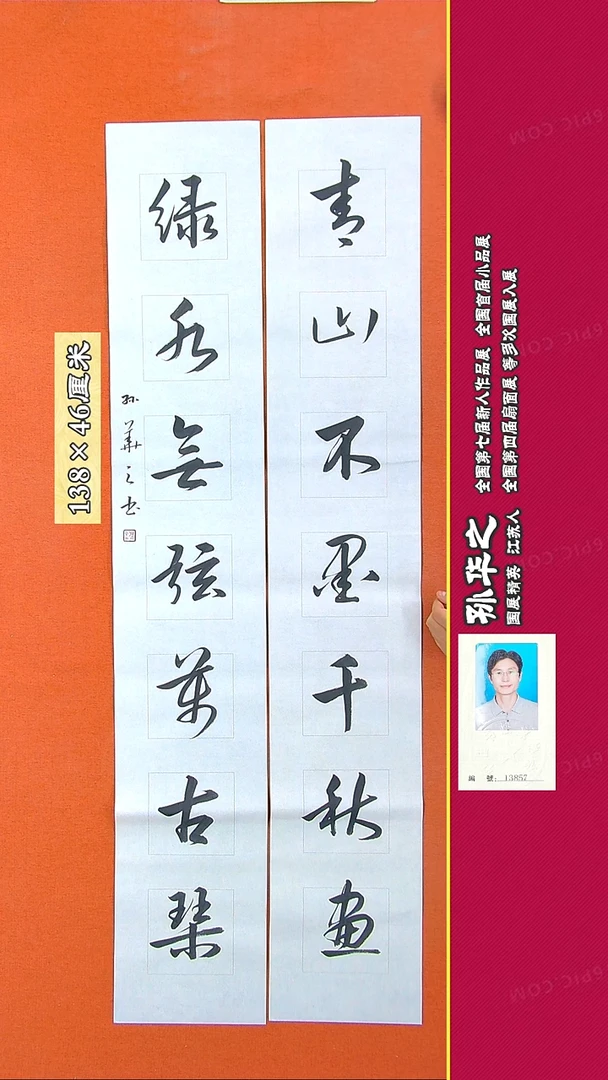 青山不墨千秋画
绿水無弦萬古琴
孙華之书
138×46厘米
孙华之
国展精英 江苏人
全国第七届新人作品展 全国首届小品展
全国第四届扇面展 等多次国展入展
編 號: 13857